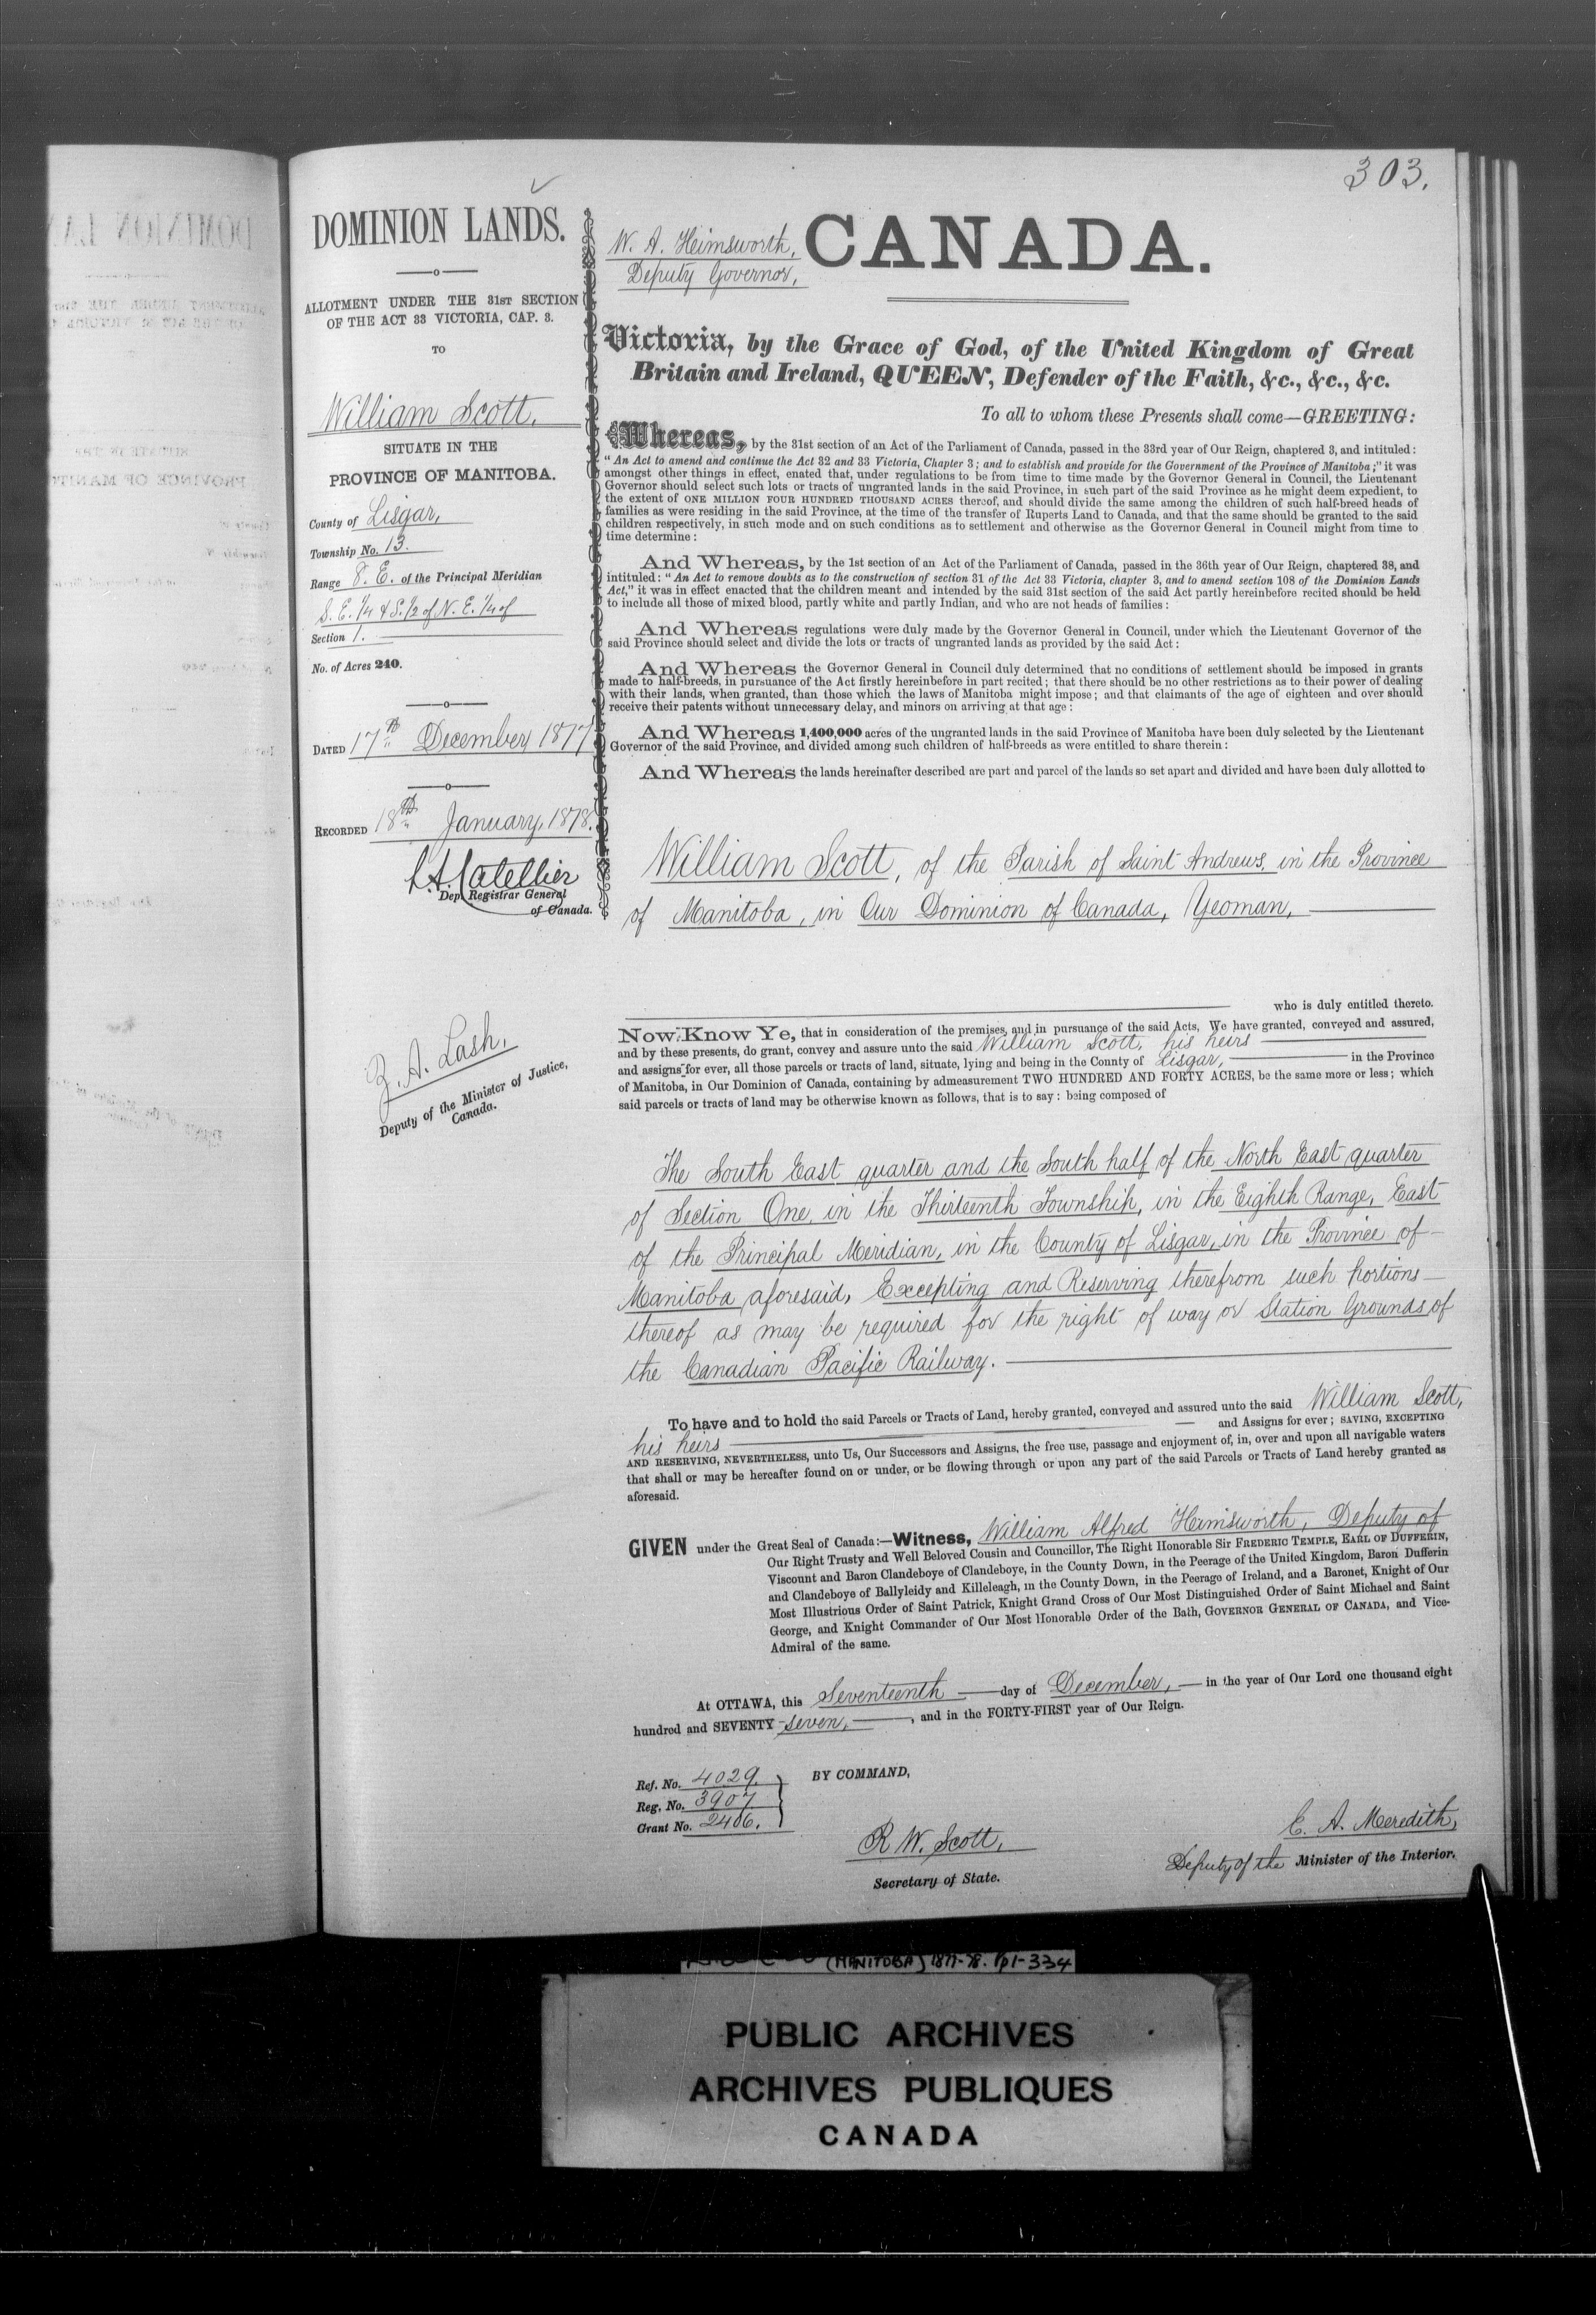 303.
DOMINION LANDS.
ALLOTMENT UNDER THE 31ST SECTION
OF THE ACT 33 VICTORIA, CAP. 3.
TO
William Scott,
SITUATE IN THE
PROVINCE OF MANITOBA.
County of Lisgar,
Township No. 13.
Range 8. E. of the Principal Meridian
S. E. 1/4 & S. 1/2 of N. E. 1/4 of
Section 1.
No. of Acres 240.
DATED 17th December 1877
RECORDED 18th January, 1878.
Dep. Registrar General
of Canada.
Z. A. Lash,
Deputy of the Minister of Justice,
Canada.
W. A. Himsworth,
Deputy Governor,
CANADA.
Victoria, by the Grace of God, of the United Kingdom of Great
Britain and Ireland, QUEEN, Defender of the Faith, &c., &c., &c.
To all to whom these Presents shall come—GREETING:
Whereas, by the 31st section of an Act of the Parliament of Canada, passed in the 33rd year of Our Reign, chaptered 3, and intituled:
"An Act to amend and continue the Act 32 and 33 Victoria, Chapter 3; and to establish and provide for the Government of the Province of Manitoba;" it was
amongst other things in effect, enated that, under regulations to be from time to time made by the Governor General in Council, the Lieutenant
Governor should select such lots or tracts of ungranted lands in the said Province, in such part of the said Province as he might deem expedient, to
the extent of ONE MILLION FOUR HUNDRED THOUSAND ACRES thereof, and should divide the same among the children of such half-breed heads of
families as were residing in the said Province, at the time of the transfer of Ruperts Land to Canada, and that the same should be granted to the said
children respectively, in such mode and on such conditions as to settlement and otherwise as the Governor General in Council might from time to
time determine:
And Whereas, by the 1st section of an Act of the Parliament of Canada, passed in the 36th year of Our Reign, chaptered 38, and
intituled: "An Act to remove doubts as to the construction of section 31 of the Act 33 Victoria, chapter 3, and to amend section 108 of the Dominion Lands
Act," it was in effect enacted that the children meant and intended by the said 31st section of the said Act partly hereinbefore recited should be held
to include all those of mixed blood, partly white and partly Indian, and who are not heads of families:
And Whereas regulations were duly made by the Governor General in Council, under which the Lieutenant Governor of the
said Province should select and divide the lots or tracts of ungranted lands as provided by the said Act:
And Whereas the Governor General in Council duly determined that no conditions of settlement should be imposed in grants
made to half-breeds, in pursuance of the Act firstly hereinbefore in part recited; that there should be no other restrictions as to their power of dealing
with their lands, when granted, than those which the laws of Manitoba might impose; and that claimants of the age of eighteen and over should
receive their patents without unnecessary delay, and minors on arriving at that age:
And Whereas 1,400,000 acres of the ungranted lands in the said Province of Manitoba have been duly selected by the Lieutenant
Governor of the said Province, and divided among such children of half-breeds as were entitled to share therein:
And Whereas the lands hereinafter described are part and parcel of the lands so set apart and divided and have been duly allotted to
William Scott, of the Parish of Saint Andrews, in the Province
of Manitoba, in Our Dominion of Canada, Yeoman,
who is duly entitled thereto.
Now Know Ye, that in consideration of the premises, and in pursuance of the said Acts, We have granted, conveyed and assured,
and by these presents, do grant, convey and assure unto the said William Scott, his heirs
and assigns for ever, all those parcels or tracts of land, situate, lying and being in the County of Lisgar, in the Province
of Manitoba, in Our Dominion of Canada, containing by admeasurement TWO HUNDRED AND FORTY ACRES, be the same more or less; which
said parcels or tracts of land may be otherwise known as follows, that is to say: being composed of
The South East quarter and the South half of the North East quarter
of Section One, in the Thirteenth Township, in the Eighth Range, East
of the Principal Meridian, in the County of Lisgar, in the Province of
Manitoba aforesaid, Excepting and Reserving therefrom such portions
thereof as may be required for the right of way or Station Grounds of
the Canadian Pacific Railway.
To have and to hold the said Parcels or Tracts of Land, hereby granted, conveyed and assured unto the said William Scott,
his heirs and Assigns for ever; SAVING, EXCEPTING
AND RESERVING, NEVERTHELESS, unto Us, Our Successors and Assigns, the free use, passage and enjoyment of, in, over and upon all navigable waters
that shall or may be hereafter found on or under, or be flowing through or upon any part of the said Parcels or Tracts of Land hereby granted as
aforesaid.
GIVEN under the Great Seal of Canada:—Witness, William Alfred Himsworth, Deputy of
Our Right Trusty and Well Beloved Cousin and Councillor, The Right Honorable Sir FREDERIC TEMPLE, EARL OF DUFFERIN,
Viscount and Baron Clandeboye of Clandeboye, in the County Down, in the Peerage of the United Kingdom, Baron Dufferin
and Clandeboye of Ballyleidy and Killeleagh, in the County Down, in the Peerage of Ireland, and a Baronet, Knight of Our
Most Illustrious Order of Saint Patrick, Knight Grand Cross of Our Most Distinguished Order of Saint Michael and Saint
George, and Knight Commander of Our Most Honorable Order of the Bath, GOVERNOR GENERAL OF CANADA, and Vice-
Admiral of the same.
At OTTAWA, this Seventeenth day of December, in the year of Our Lord one thousand eight
hundred and SEVENTY-seven, and in the FORTY-FIRST year of Our Reign.
Ref. No. 4029.
Reg. No. 3907
Grant No. 2406.
BY COMMAND,
R. W. Scott,
Secretary of State.
C. A. Meredith,
Deputy of the Minister of the Interior.
(MANITOBA) 1877-78. Pp1-334
PUBLIC ARCHIVES
ARCHIVES PUBLIQUES
CANADA